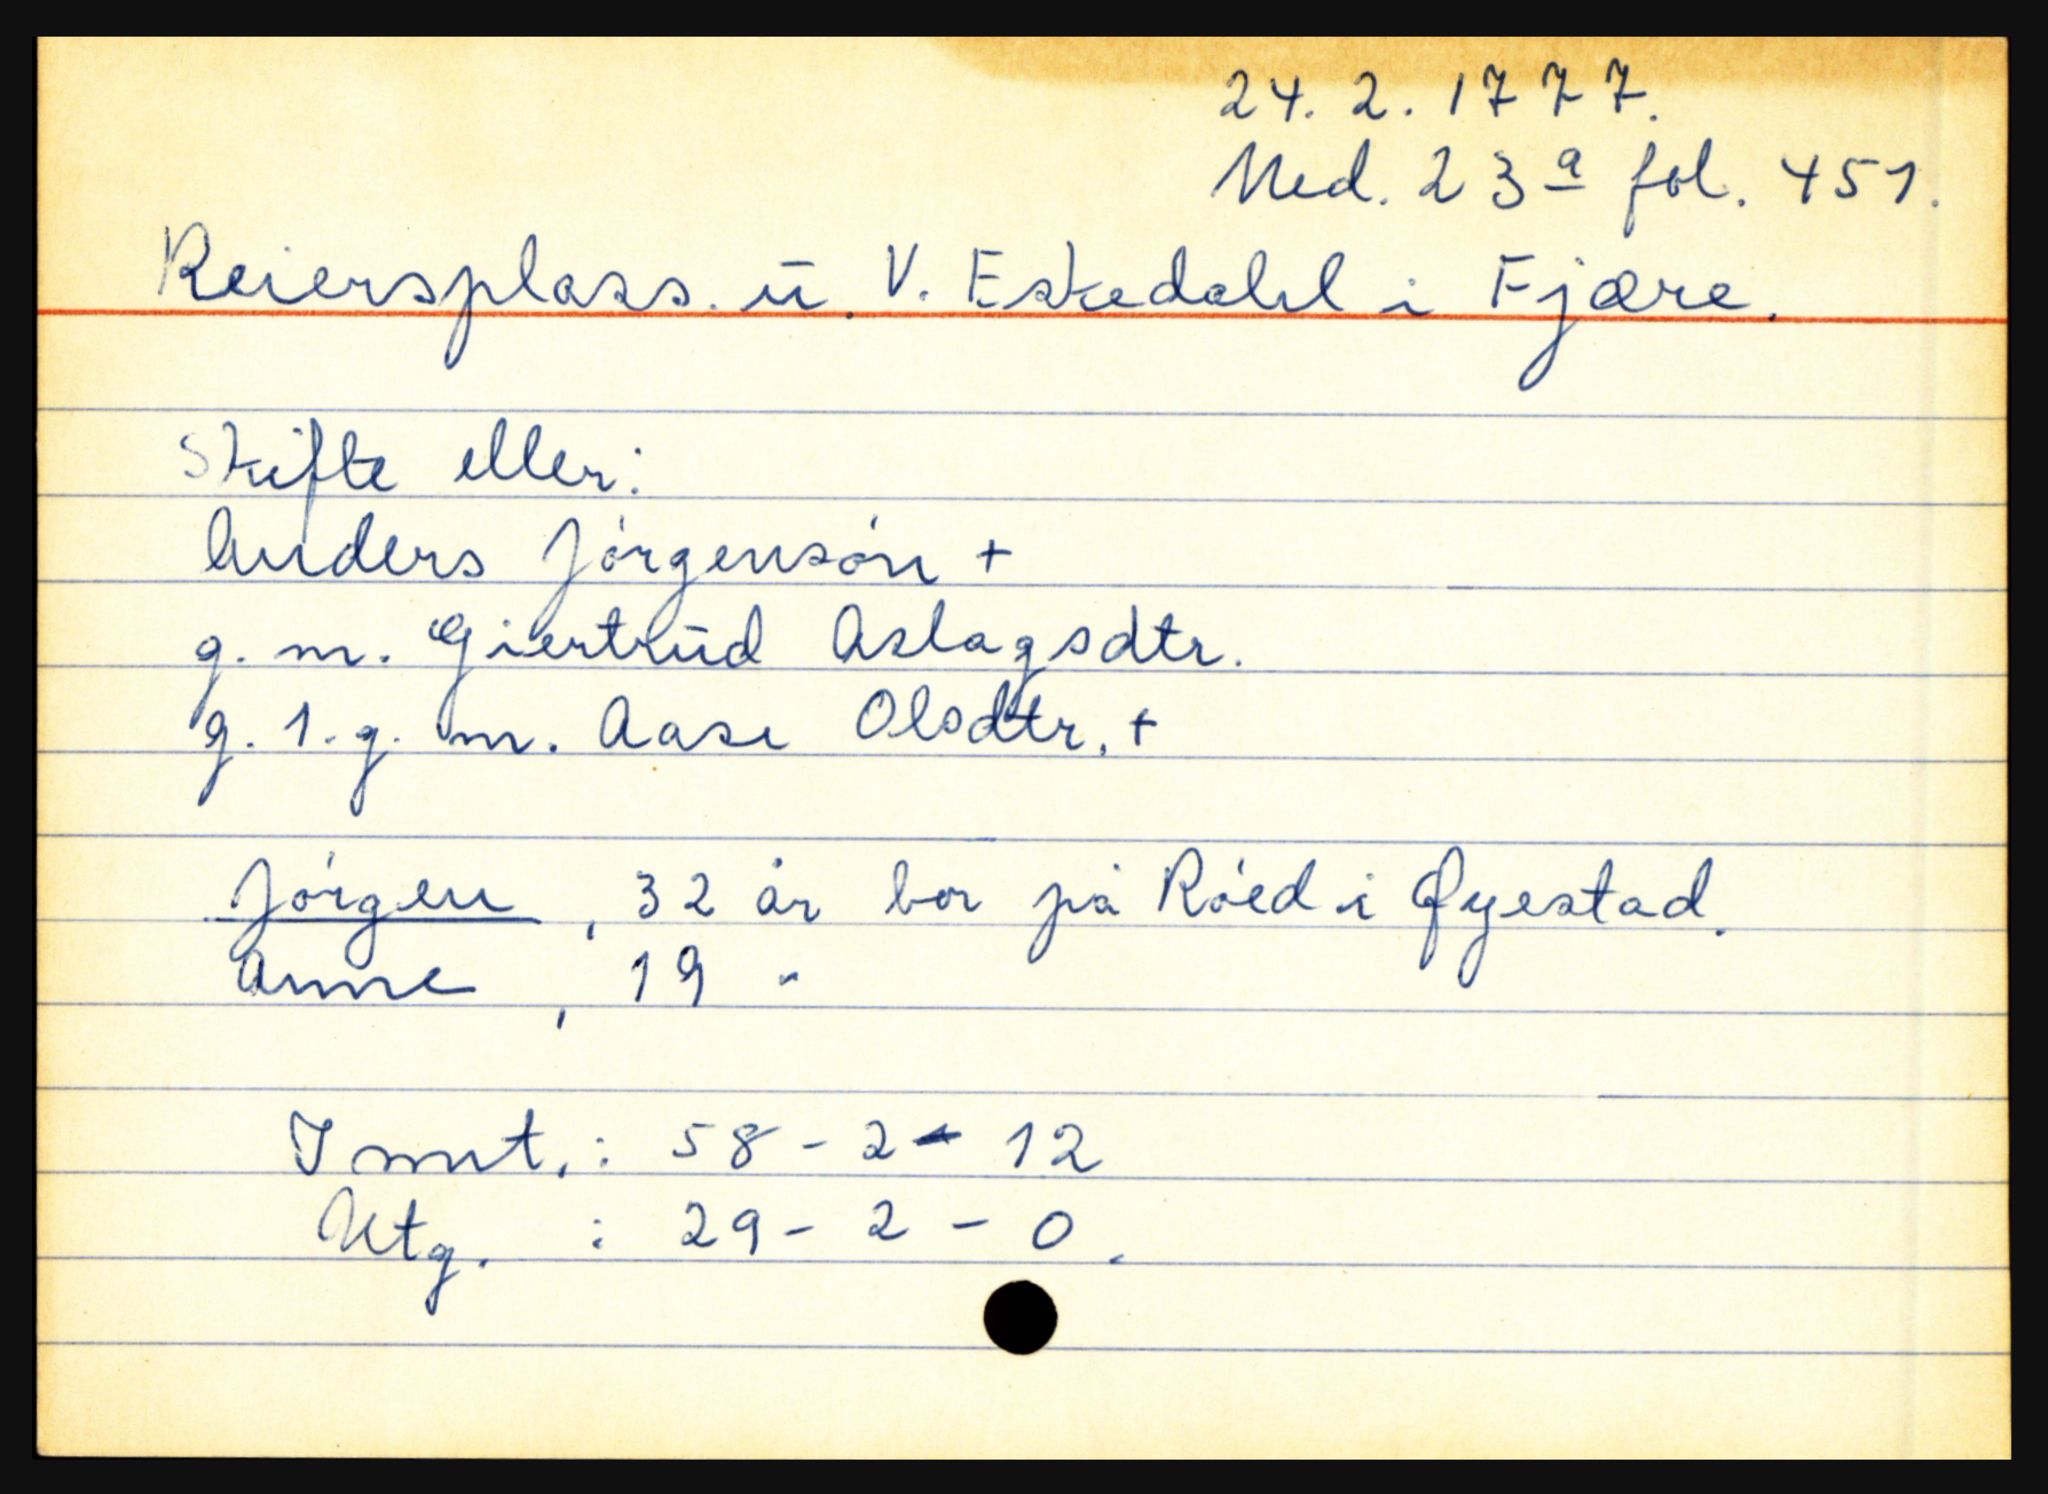 24. 2. 1777.
Ned. 23ª fol. 451.
Reiersplass. ū. V. Eskedahl i Fjære.
Skifte eller:
Anders Jórgensón +
g. m. Giertrūd Aslagsdtr.
g. 1. g. m. Aase Olsdtr. +
Jórgen, 32 år bor på Róed i Øyestad.
Anne, 19 "
Innt. : 58 - 2 - 12
Utg. : 29 - 2 - 0.